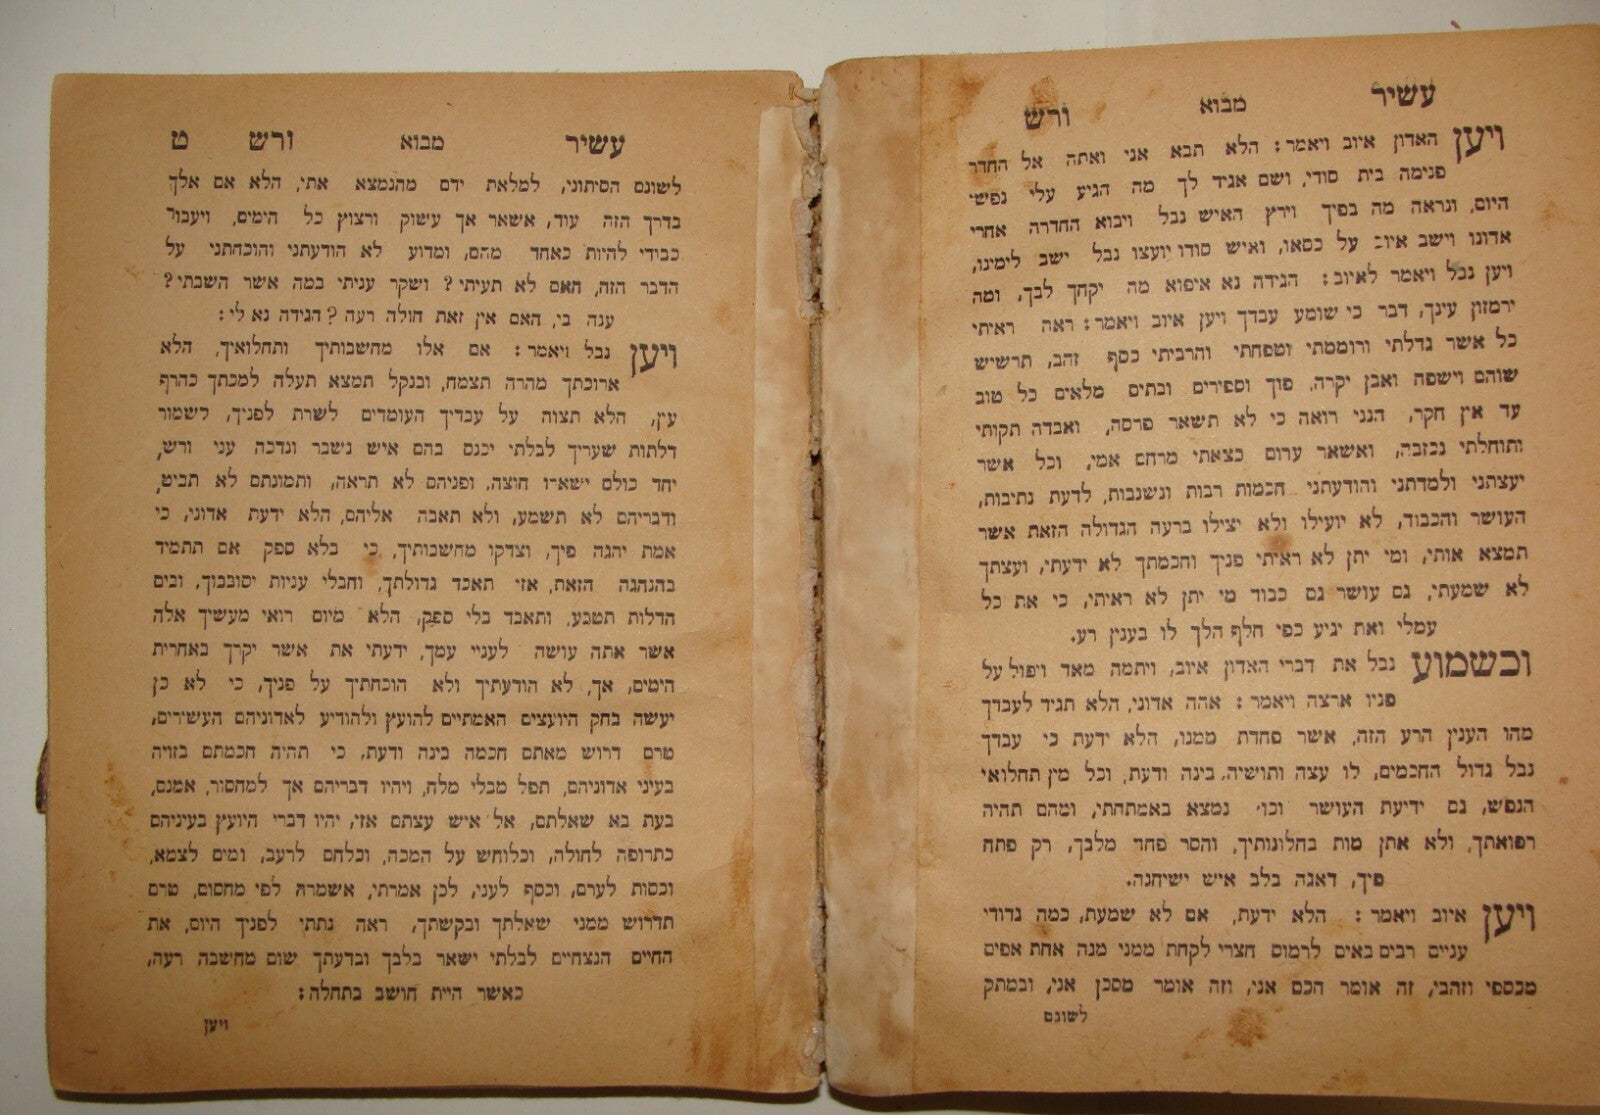 עשיר מבוא ורש
ויען האדון איוב ויאמר: הלא תבא אני ואתה אל החדר
פנימה בית סודי, ושם אגיד לך מה הגיע עלי נפשי
היום, ונראה מה בפיך וירץ האיש נבל ויבוא החדרה אחרי
אדונו וישב איוב על כסאו, ואיש סודו יועצו נבל ישב לימינו,
ויען נבל ויאמר לאיוב: הגידה נא איפוא מה יקחך לבך, ומה
ירמזון עינך, דבר כי שומע עבדך ויען איוב ויאמר: ראה ראיתי
כל אשר גדלתי ורוממתי וטפחתי והרביתי כסף זהב, תרשיש
שוהם וישפה ואבן יקרה, פוך וספירים ובתים מלאים כל טוב
עד אין חקר, הנני רואה כי לא תשאר פרסה, ואבדה תקותי
ותוחלתי נכזבה, ואשאר ערום כצאתי מרחם אמי, וכל אשר
יעצתני ולמדתני והודעתני חכמות רבות ונשגבות, לדעת נתיבות,
העושר והכבוד, לא יועילו ולא יצילו ברעה הגדולה הזאת אשר
תמצא אותי, ומי יתן לא ראיתי פניך וחכמתך לא ידעתי, ועצתך
לא שמעתי, גם עושר גם כבוד מי יתן לא ראיתי, כי את כל
עמלי ואת יגיע כפי חלף הלך לו בענין רע.
וכשמוע נבל את דברי האדון איוב, ויתמה מאד ויפול על
פניו ארצה ויאמר: אהה אדוני, הלא תגיד לעבדך
מהו הענין הרע הזה, אשר פחדת ממנו, הלא ידעת כי עבדך
נבל גדול החכמים, לו עצה ותושיה, בינה ודעת, וכל מין תחלואי
הנפש, גם ידיעת העושר וכו' נמצא באמתחתי, ומהם תהיה
רפואתך, ולא אתן מות בחלונותיך, והסר פחד מלבך, רק פתח
פיך, דאגה בלב איש ישיחנה.
ויען איוב ויאמר: הלא ידעת, אם לא שמעת, כמה גדודי
עניים רבים באים לרמוס חצרי לקחת ממני מנה אחת אפים
מכספי וזהבי, זה אומר חכם אני, וזה אומר מסכן אני, ובמתק
לשונם
עשיר מבוא ורש ט
לשונם הסיתוני, למלאת ידם מהנמצא אתי, הלא אם אלך
בדרך הזה עוד, אשאר אך עשוק ורצוץ כל הימים, ויעבור
כבודי להיות כאחד מהם, ומדוע לא הודעתני והוכחתני על
הדבר הזה, האם לא תעיתי? ושקר עניתי במה אשר השבתי?
ענה בי, האם אין זאת חולה רעה? הגידה נא לי:
ויען נבל ויאמר: אם אלו מחשבותיך ותחלואיך, הלא
ארוכתך מהרה תצמח, ובנקל תמצא תעלה למכתך כהרף
עין, הלא תצוה על עבדיך העומדים לשרת לפניך, לשמור
דלתות שעריך לבלתי יכנם בהם איש נשבר ונדכה עני ורש,
יחד כולם ישארו חוצה, ופניהם לא תראה, ותמונתם לא תביט,
ודבריהם לא תשמע, ולא תאבה אליהם, הלא ידעת אדוני, כי
אמת יהגה פיך, וצדקו מחשבותיך, כי בלא ספק אם תתמיד
בהנהגה הזאת, אזי תאבד גדולתך, וחבלי עניות יסובבוך, ובים
הדלות תטבע, ותאבד בלי ספק, הלא מיום רואי מעשיך אלה
אשר אתה עושה לעניי עמך, ידעתי את אשר יקרך באחרית
הימים, אך, לא הודעתיך ולא הוכחתיך על פניך, כי לא כן
יעשה בחק היועצים האמתיים להועץ ולהודיע לאדוניהם העשירים,
טרם דרוש מאתם חכמה בינה ודעת, כי תהיה חכמתם בזויה
בעיני אדוניהם, תפל מבלי מלח, ויהיו דבריהם אך למחסור, אמנם,
בעת בא שאלתם, אל איש עצתם אזי, יהיו דברי היועץ בעיניהם
כתרופה לחולה, וכלוחש על המכה, וכלחם לרעב, ומים לצמא,
וכסות לערם, וכסף לעני, לכן אמרתי, אשמרה לפי מחסום, טרם
תדרוש ממני שאלתך ובקשתך, ראה נתתי לפניך היום, את
החיים הנצחיים לבלתי ישאר בלבך ובדעתך שום מחשבה רעה,
כאשר היית חושב בתחלה:
ויען